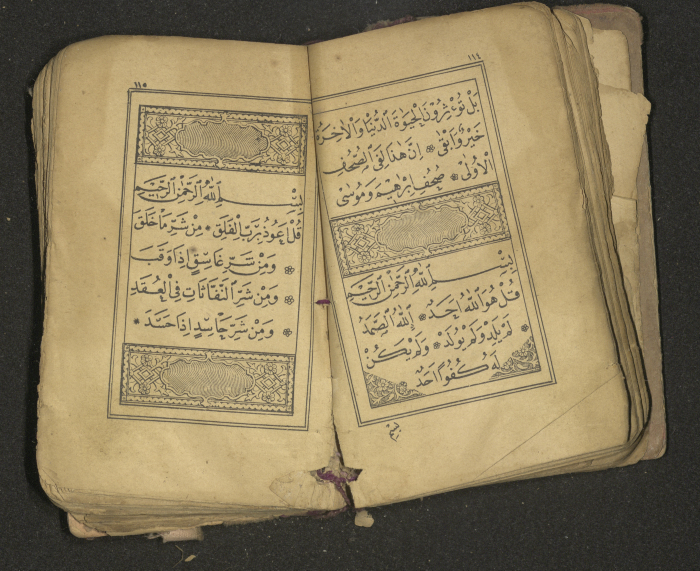 ١١٤
بَلْ تُوءْثِرُونَ الْحَيٰوةَ الدُّنْيَا وَالْاٰخِرَةُ
خَيْرٌ وَاَبْقٰى ❊ اِنَّ هٰذَا لَفِى الصُّحُفِ
الْاُولٰى ❊ صُحُفِ اِبْرٰهِيمَ وَمُوسٰى
بِسْــمِ اللّٰهِ الرَّحْمٰنِ الرَّحِيمِ
قُلْ هُوَ اللّٰهُ اَحَدٌ ❊ اَللّٰهُ الصَّمَدُ
❊ لَمْ يَلِدْ وَلَمْ يُولَدْ ❊ وَلَمْ يَكُنْ
لَهُ كُفُوًا اَحَدٌ
١١٥
بِسْــمِ اللّٰهِ الرَّحْمٰنِ الرَّحِيمِ
قُلْ اَعُوذُ بِرَبِّ الْفَلَقِ ❊ مِنْ شَرِّ مَا خَلَقَ
❊ وَمِنْ شَرِّ غَاسِقٍ اِذَا وَقَبَ
❊ وَمِنْ شَرِّ النَّفَّاثَاتِ فِى الْعُقَدِ
❊ وَمِنْ شَرِّ حَاسِدٍ اِذَا حَسَدَ ❊